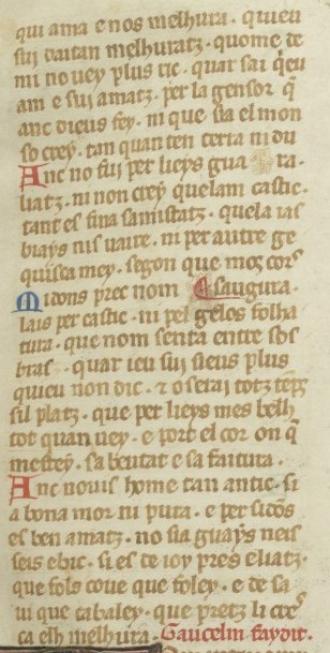 qui ama e nos melhura · quieu
sui daitan melhuratz · quome de
mi no uey plus ric · quar sai q̃eu
am e sui amatz · per la gensor q̃
anc dieus fey · ni que sia el mon
so crey · tan quan ten terra ni du
Anc no fui per lieys gua ra
liatz · ni non crey quelam castic ·
tant es fina samistatz · quela ias
brays nis uaire · ni per autre ge
quisca mey · segon que mos cors
Midons prec nom saugura ·
lais per castic · ni pel gelos folha
tura · que nom senta entre sos
bras · quar ieu sui sieus plus
quieu non dic · ⁊ o serai totz temps
sil platz · que per lieys mes belh
tot quan uey · e port el cor on q̃
mestey · sa beutat e sa faitura ·
Anc nouis home tan antic · si
a bona mor ni pura · e per sidõs
es ben amatz · no sia guays neis
seis ebric · si es de ioy pres eliatz ·
que fols coue que foley · e de sa
ui que cabaley · que pretz li
ca elh melhura · Gaucelm faydit.